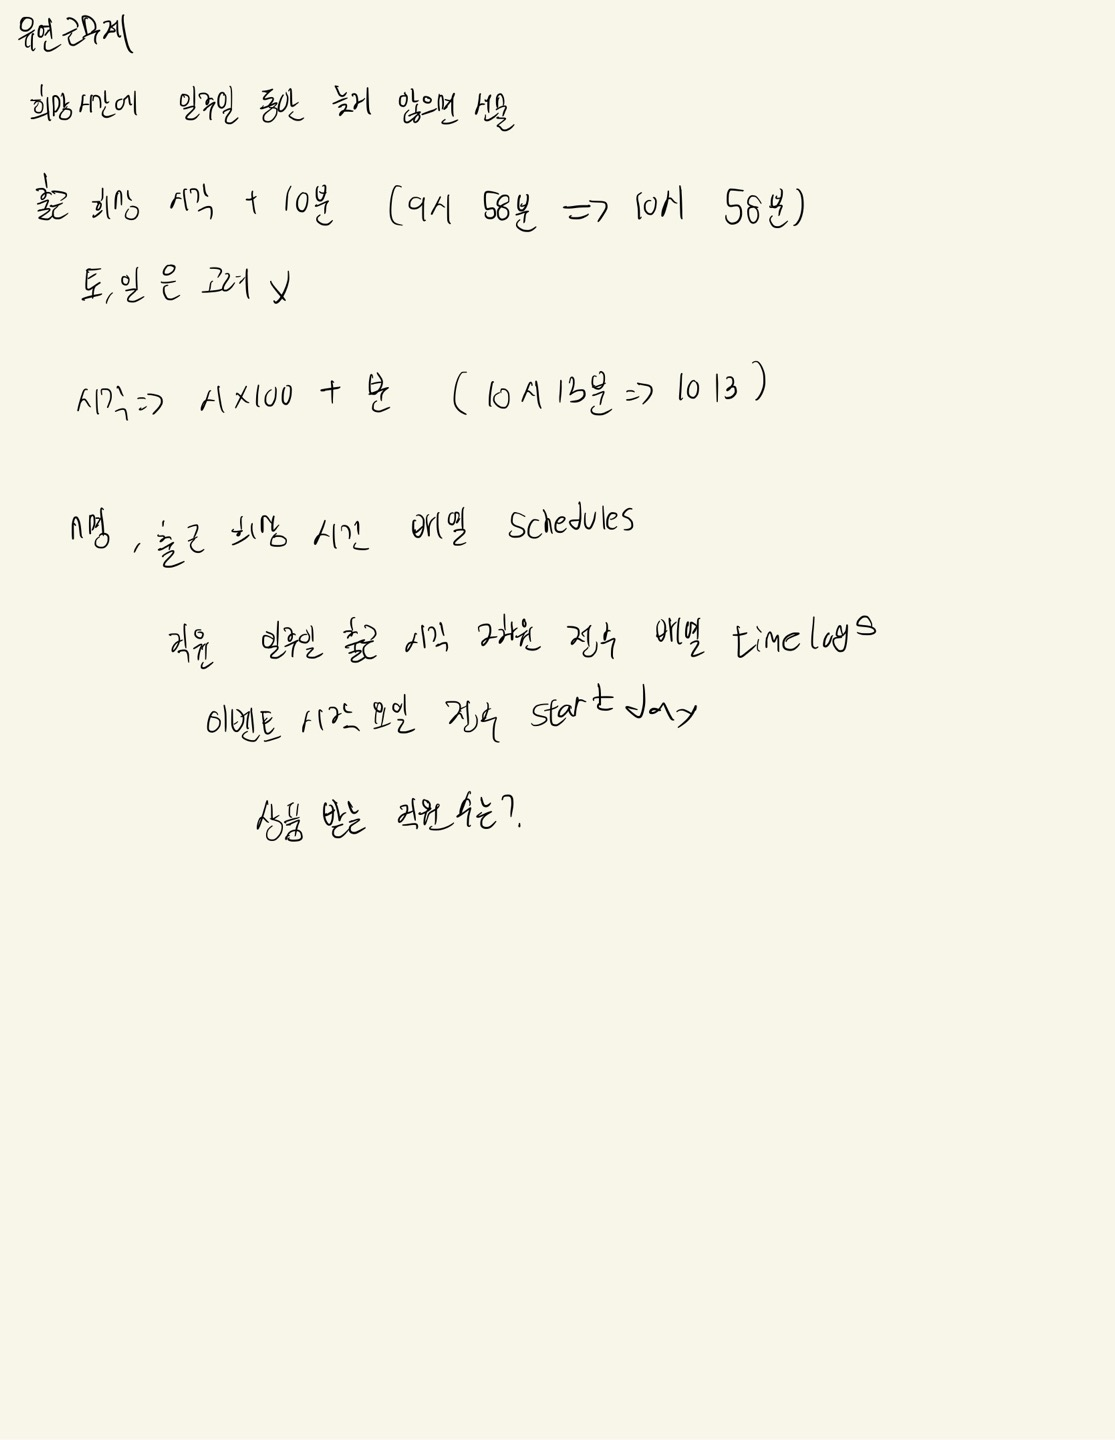 유연근무제
희망시간에 일주일 동안 늦지 않으면 선물
출근 희망 시각 + 10분 (9시 58분 => 10시 58분)
토,일은 고려 X
시각 => 시×100 + 분 (10시 13분 => 1013)
n명, 출근 희망 시간 배열 schedules
직원 일주일 출근 시각 2차원 정수 배열 timelogs
이벤트 시작 요일 정수 startday
상품 받는 직원 수는?